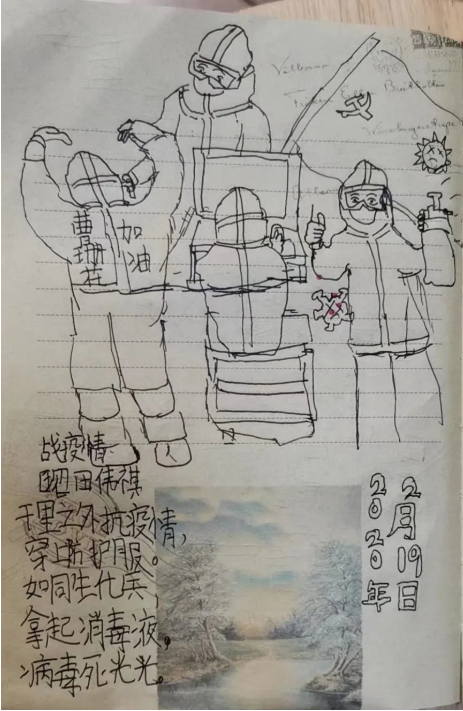 曹珊花
加油
战疫情
田伟祺
千里之外抗疫情，
穿上防护服。
如同生化兵，
拿起消毒液，
病毒死光光。
2月19日
2020年